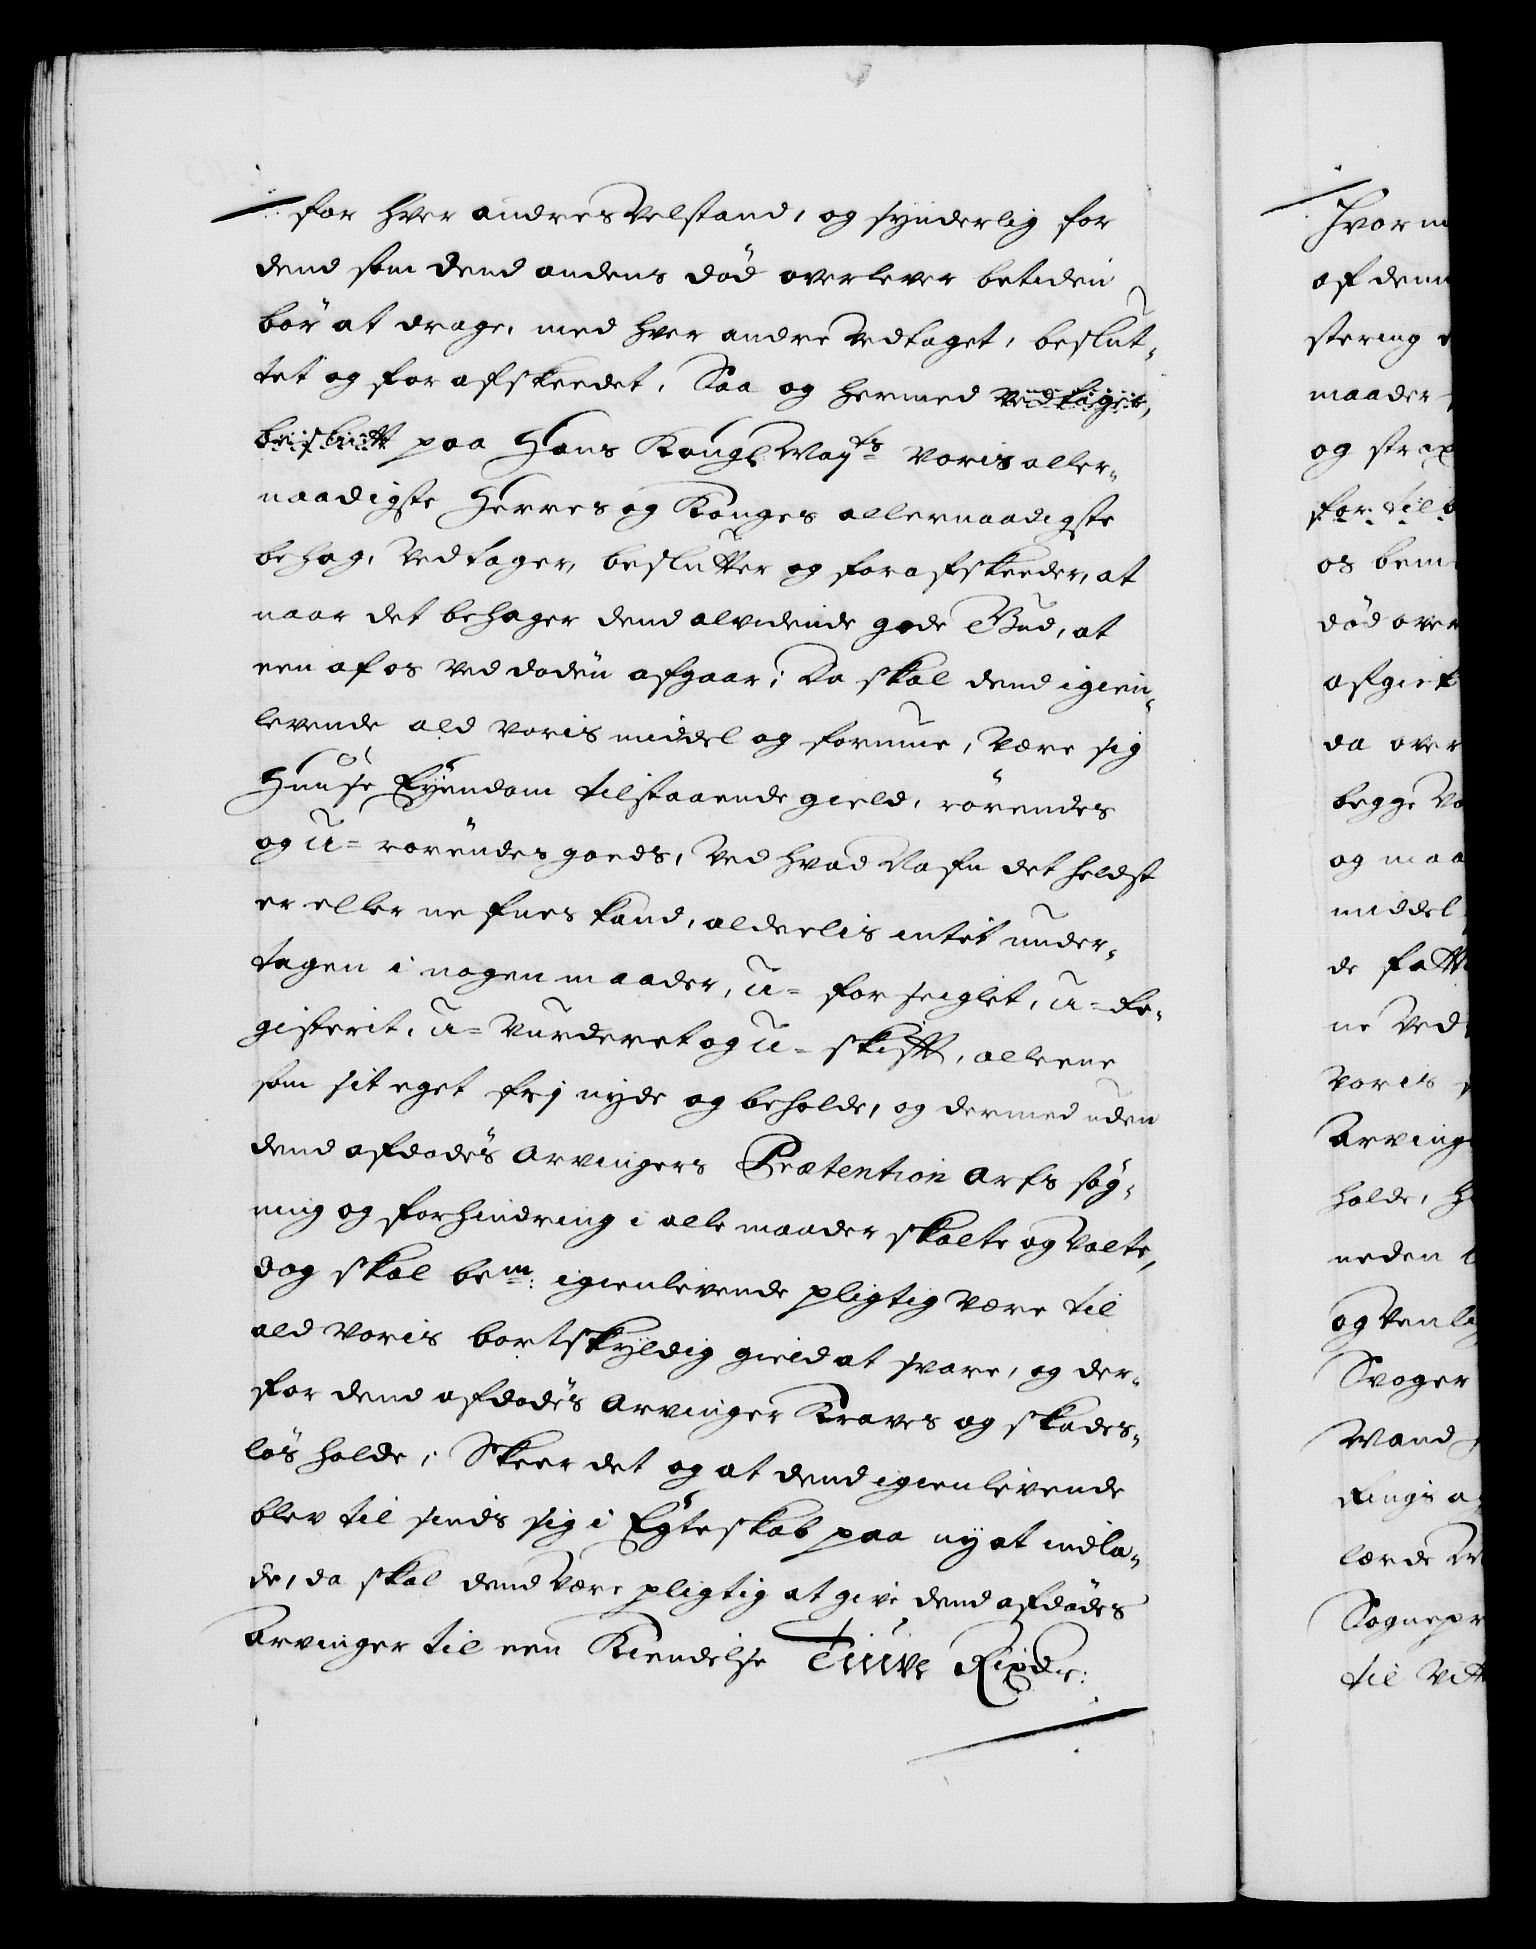 for hver andres Velstand, og synderlig for
dend som dend andens död overlever betiden
bör at drage, med hver andre Vedtaget, beslut-
tet og for afskeedet, Saa og hermed vedtaget,
besluttt paa Hans Kongl May^ts Voris aller-
naadigste Herres og Konges allernaadigste
behag, Vedtager, beslutter og for afskeeder, at
naar det behager dend alvidende gode Gud, at
een af os ved döden afgaar; Da skal dend igien-
levende ald voris middel og formue, Være sig
Huuse Eyendom tilstaaende gield, rörendes
og U-rörendes goeds, Ved hvad Nafn det helst
er eller nefnes kand, alderlis intet under-
tagen i nogen maader, U-forseiglet, U-Re-
gisterit, U-Vurderet og U-skifft, alleene
som sit eget frj nyde og beholde, og dermed uden
dend afdödes Arvingers Prætention Arfs sög-
ning og forhindring i alle maader skalte og Valte,
dog skal bem: igienlevende pligtig Være til
ald Voris bortskyldig gield at svare, og der-
for dend afdödes Arvinger Kraves og skades-
lös holde; Skeer det og at dend igienlevende
blev til sinds sig i Egteskab paa ny at indla-
de, da skal dend Være pligtig at give dend afdödes
Arvinger til een Kiendelse Tiuve Rixdr:
Hvorm
af denn
stering
maader
og strax
for til b
os bem
död over
afgiek
da over
begge Vo
og maa
middel
de fatt
ne Ved
Voris
Arving
holde, h
neden
og Venlig
Svoger
Mand
Rings
lærde
Sognepr
til Vitt